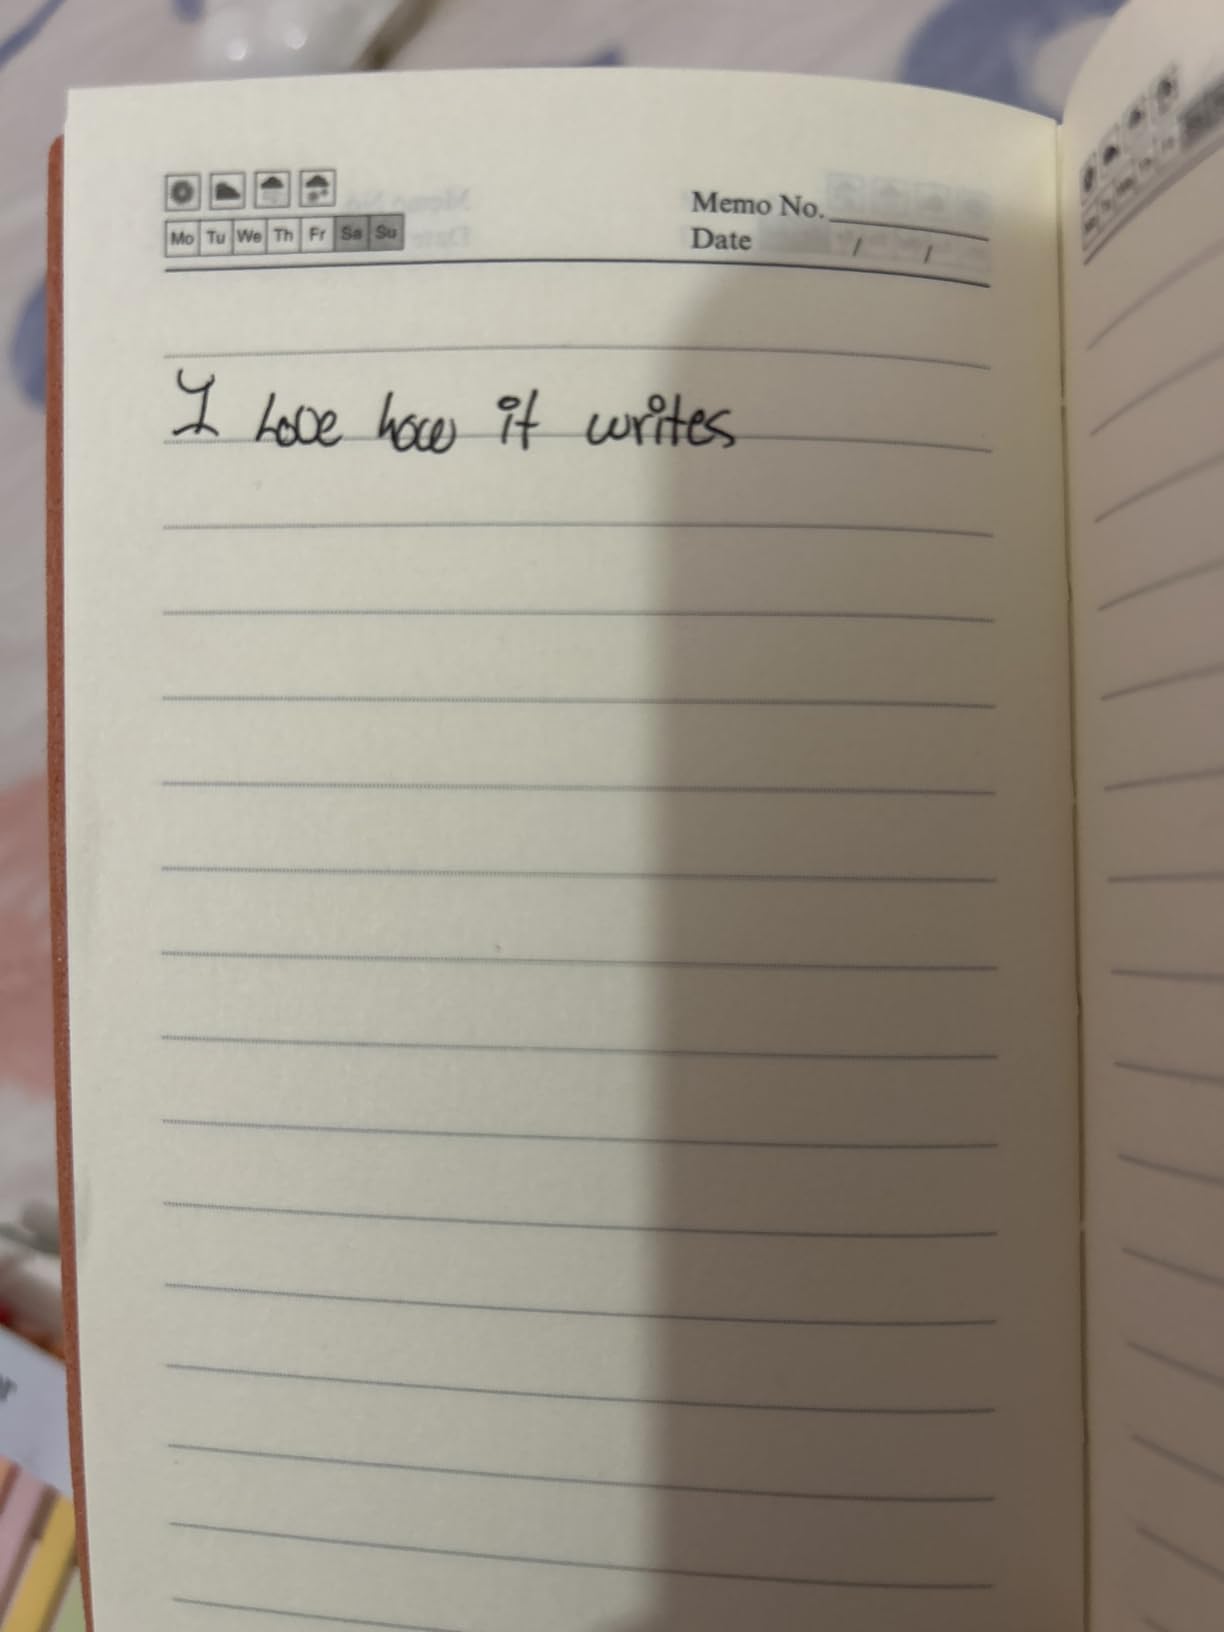 Memo No.
Mo Tu We Th Fr Sa Su
Date / /
I Love how it writes